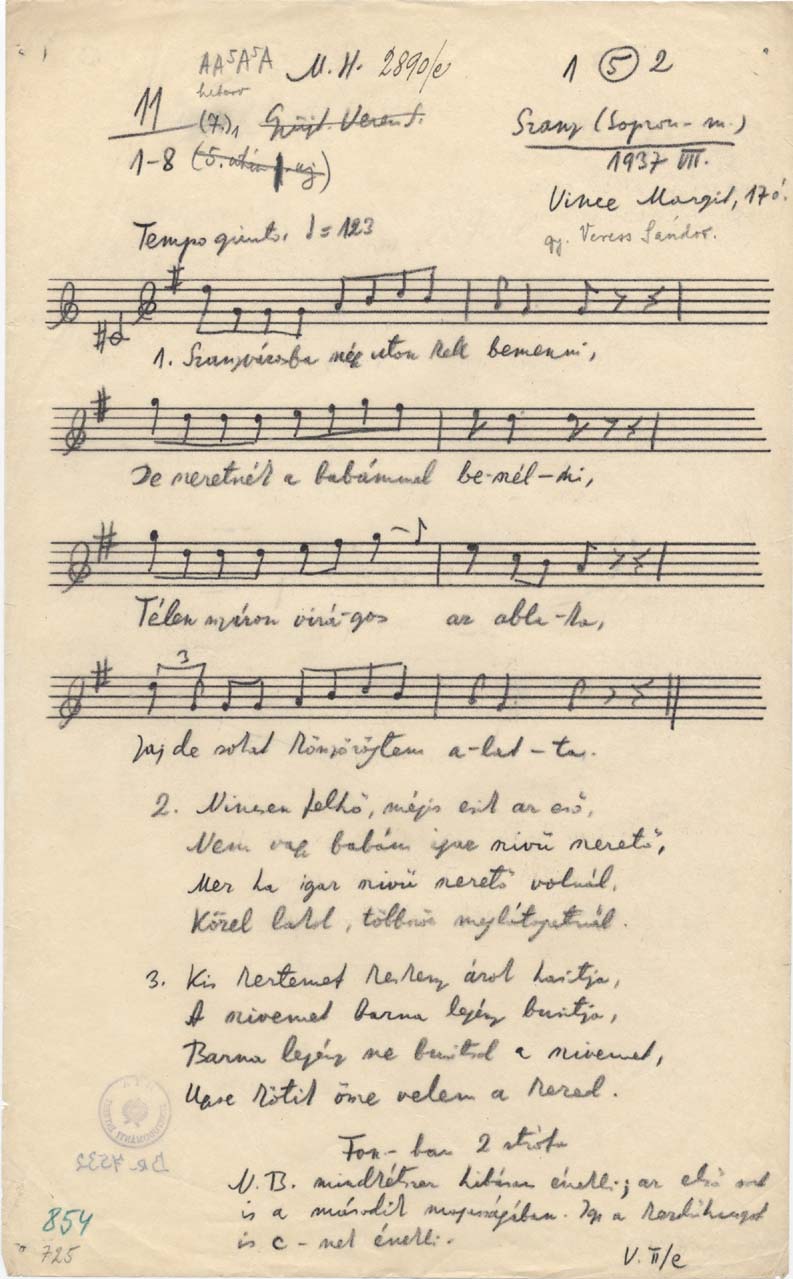 AA⁵A⁵A M.H. 2890/e 1 (5) 2
11 (7.)₁ Gyüjt. Veress S. Szany (Sopron-m.)
1-8 (5. után uj) 1937 VII.
Vince Margit, 17 é.
Tempo giusto. ♩=123 gy. Veress Sándor.
1. Szanyvárosba négy uton kell bemenni,
De szeretnék a babámmal be-szél-ni,
3
Télen nyáron virá-gos az abla-ka,
Jaj de sokat könyörögtem a-lat-ta.
2. Nincsen felhő, mégis esik az eső,
Nem vagy babám igaz szivü szerető,
Mer ha igaz szivü szerető volnál,
Közel laksz, többször meglátogatnál.
3. Kis kertemet keskeny árok hasitja,
A szivemet barna legény busitja,
Barna legény ne busitsd a szivemet,
Ugse kötik össze velem a kezed.
Fon-ban 2 strófa
N.B. mindkétszer hibásan énekli; az első sort
is a második magasságában. Igy a kezdőhangot
is c-nek énekli.
854
725
V. II/e